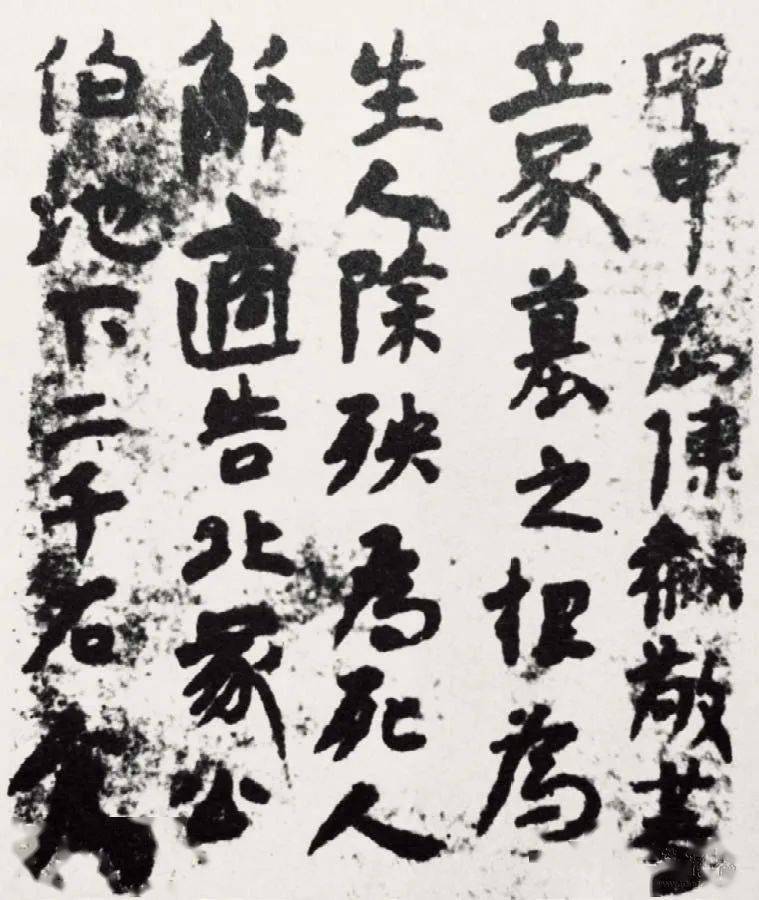 甲申為陳敬等
立冢墓之根為
生人除殃為死人
解適告北冢公
伯地下二千石